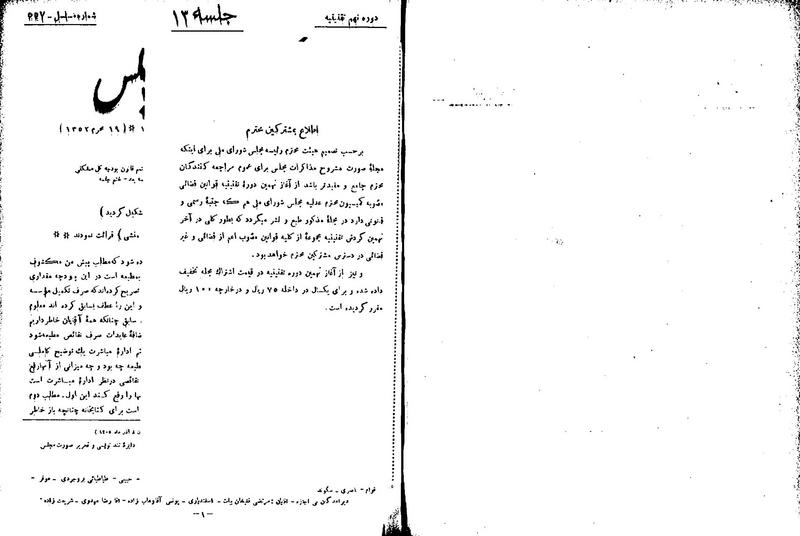 دوره نهم تقنینیه
جلسه ۱۳
اطلاع بمشترکین محترم
بر حسب تصمیم هیئت محترم رئیسه مجلس شورای ملی برای اینکه
مجلهٔ صورت مشروح مذاکرات مجلس برای عموم مراجعه کنندگان
محترم جامع و مفیدتر باشد از آغاز نهمین دورهٔ تقنینیه قوانین قضائی
مصوبه کمیسیون محترم عدلیه مجلس شورای ملی هم که جنبهٔ رسمی و
قانونی دارد در مجلهٔ مذکور طبع و نشر میگردد که بطور کلی در آخر
نهمین دوره تقنینیه مجموعهٔ از کلیه قوانین مصوب اعم از قضائی و غیر
قضائی در دسترس مشترکین محترم خواهد بود.
و نیز از آغاز نهمین دوره تقنینیه در قیمت اشتراك مجله تخفیف
داده شده و برای یکسال در داخله ۷۵ ریال و در خارجه ۱۰۰ ریال
مقرر گردیده است.
(۱۹ محرم ۱۳۵۲)
قانون بودجه کل مملکتی
ختم جلسه
تشکیل گردید)
منشی) قرائت نمودند
شود که مطالب پیش من
مطبعه است در این بودجه مقداری
تصریح کرده اند که صرف تکمیل مؤسسه
و این را عطف بسابق کرده اند معلوم
سابق چنانکه همهٔ آقایان خاطر دارند
عایدات صرف نقائص مطبعه شود
ادارهٔ مباشرت یك توضیح کاملی
چه بود و چه میزانی از آنها رفع
نقائصی در نظر ادارهٔ مباشرت است
رفع کنند این اول. مطالب دوم
است برای کتابخانه چنانچه باز خاطر
دایرهٔ تند نویسی و تحریر صورت مجلس
طباطبائی بروجردی - موقر -
قوام - ناصری -
دیر آمدگان بی اجازه - آقایان: مرتضی قلیخان بیات - اسفندیاری - یونس آقا وهاب زاده - آقا رضا مهدوی - شریعت زاده
-۱-